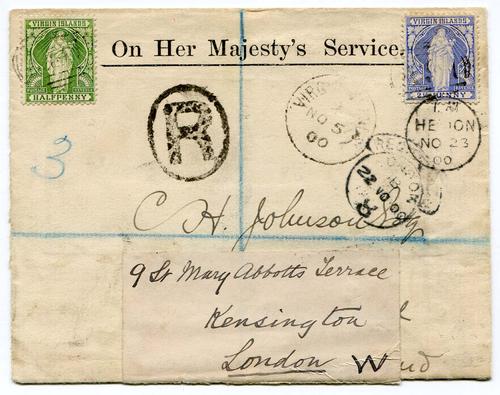 VIRGIN ISLANDS
HALFPENNY
VIRGIN ISLANDS
PENNY
On Her Majesty's Service.
R
VIRGIN
NO 5
00
HENDON
NO 23
00
22 NO 00
3
C H. Johnson Esq
9 St Mary Abbotts Terrace
Kensington
London W